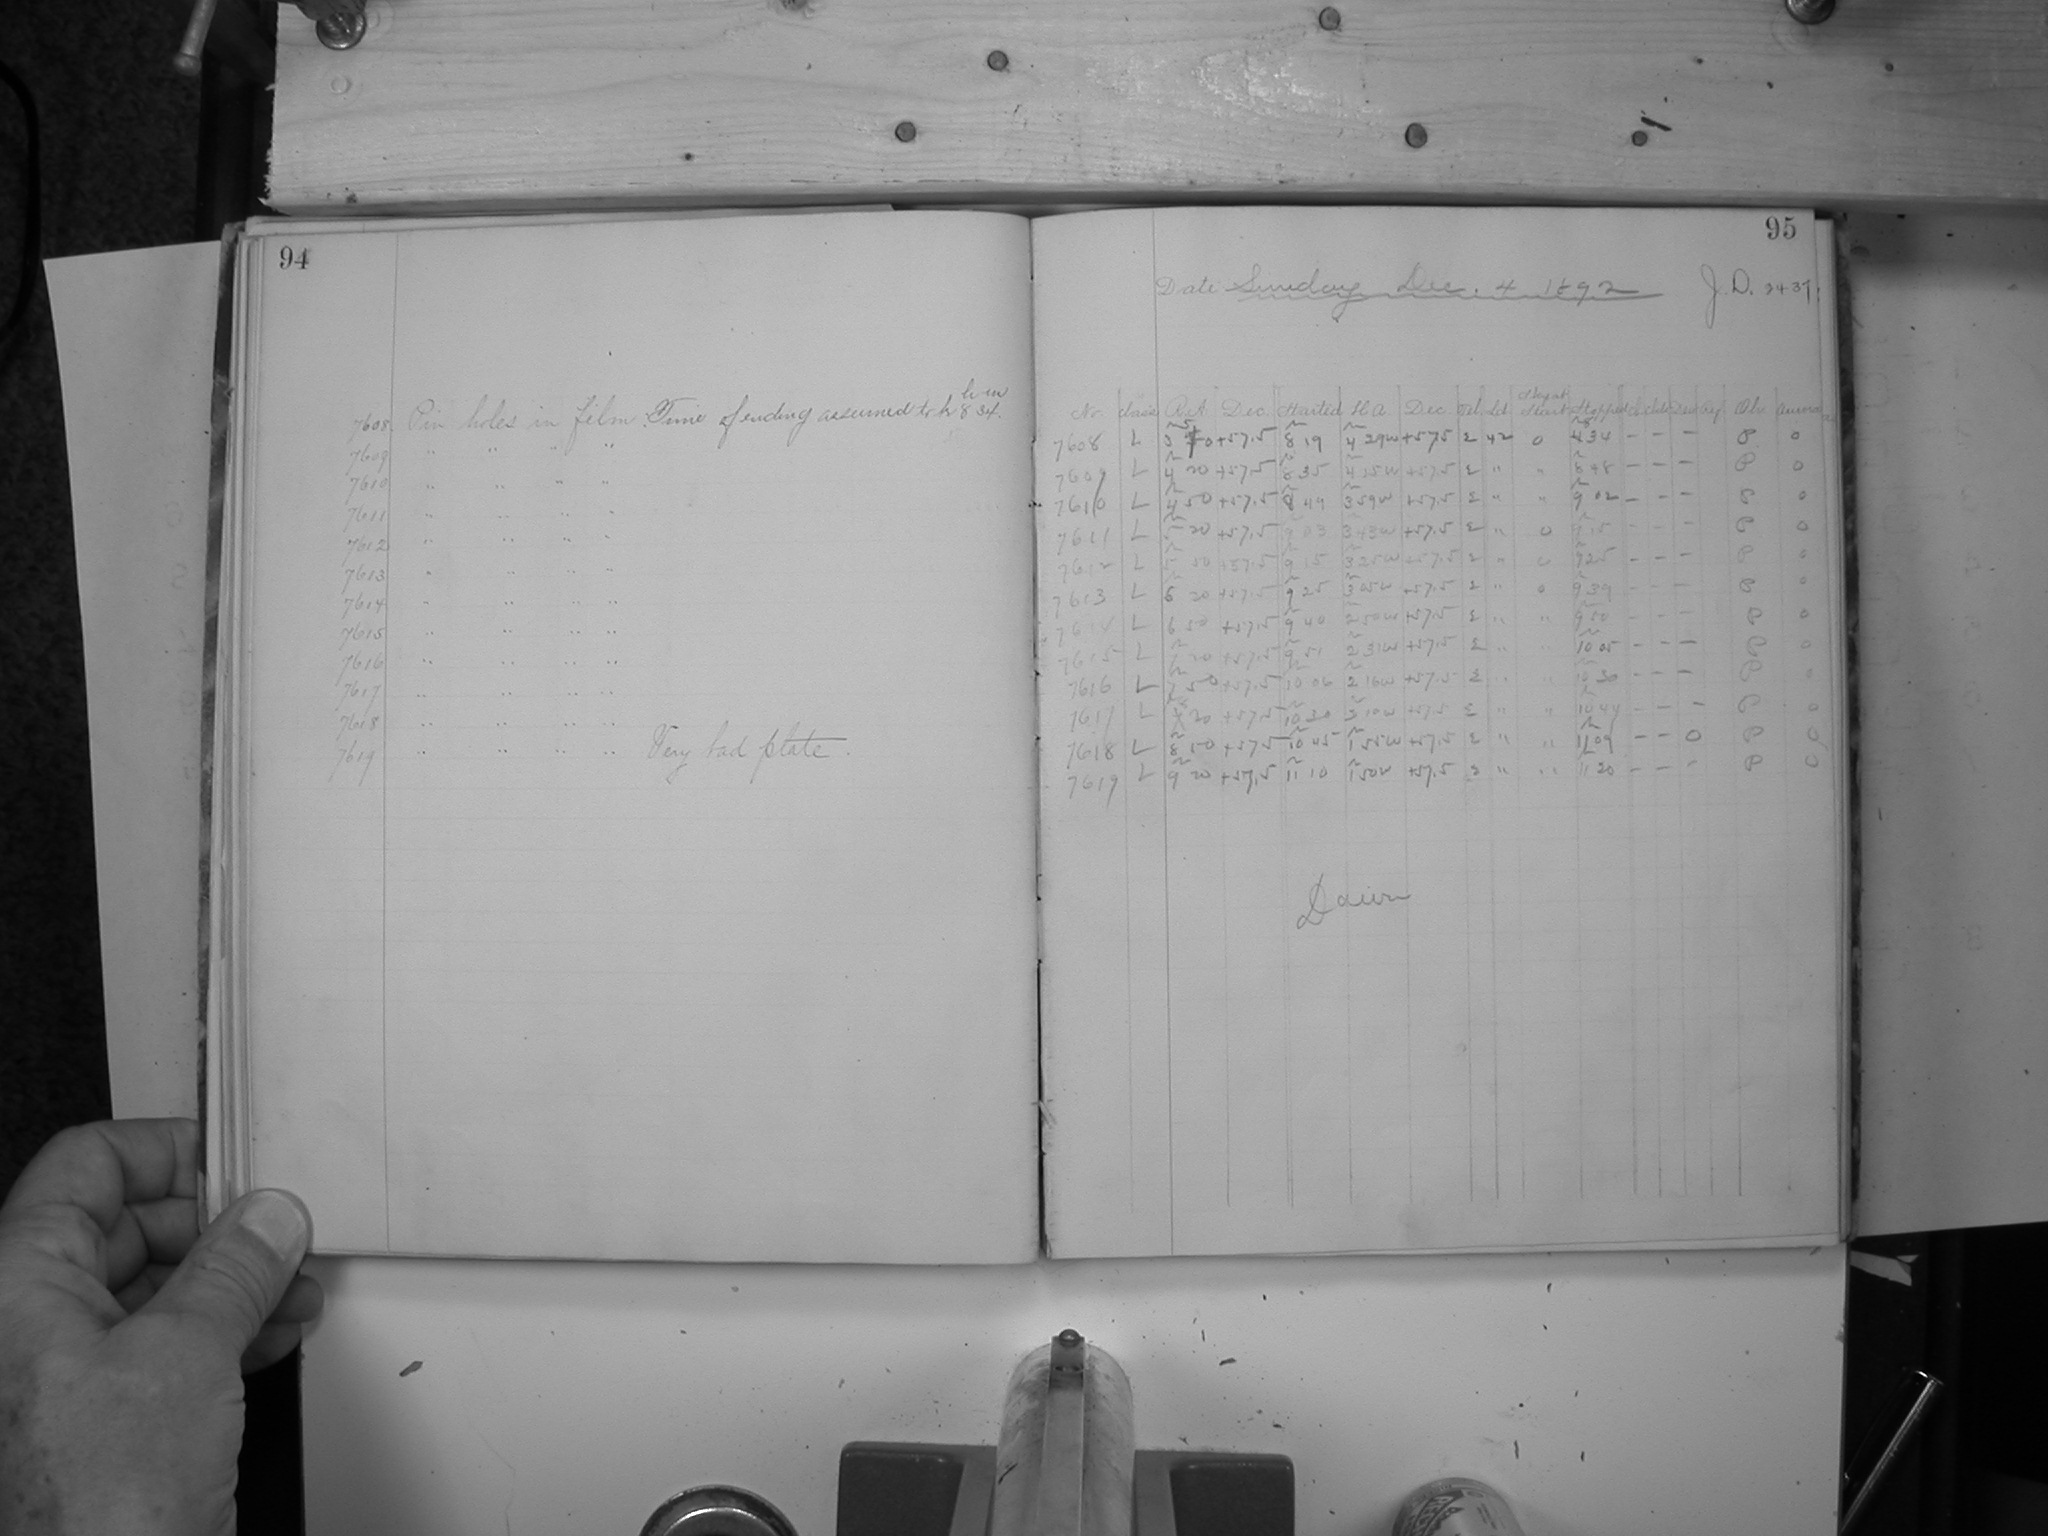 94
7608 Pin holes in film. Time of ending assumed to be 8 h 34 m.
7609 " " " "
7610 " " " "
7611 " " " "
7612 " " " "
7613 " " " "
7614 " " " "
7615 " " " "
7616 " " " "
7617 " " " "
7618 " " " "
7619 " " " " Very bad plate.
95
Date Sunday Dec. 4 1892 J.D. 2437
No. Class R.A. Dec. Started H.A. Dec. Stopped Obs.
7608 L +57.5 8 19 4 29w +57.5 Σ 42 0 - - - P 0
7609 L 4 20 +57.5 8 35 4 15w +57.5 Σ " " 8 48 - - - P 0
7610 L 4 50 +57.5 8 49 3 59w +57.5 Σ " " 9 02 - - - P 0
7611 L 5 20 +57.5 9 03 3 43w +57.5 Σ " 0 9 15 P 0
7612 L 5 50 +57.5 9 15 3 25w +57.5 Σ " 0 9 25 - - - P 0
7613 L 6 20 +57.5 9 25 3 05w +57.5 Σ " 0 9 39 - - - P 0
7614 L 6 50 +57.5 9 40 2 50w +57.5 Σ " " 9 50 P 0
7615 L 7 20 +57.5 9 51 2 31w +57.5 Σ " " 10 05 - - - P 0
7616 L 7 50 +57.5 10 06 2 16w +57.5 Σ " " - - - P 0
7617 L 8 20 +57.5 10 30 2 10w +57.5 Σ " " 10 44 - - - P 0
7618 L 8 50 +57.5 10 45 1 55w +57.5 Σ " " 11 09 - - 0 P 0
7619 L 9 20 +57.5 11 10 1 50w +57.5 Σ " " 11 20 - - - P 0
Dawn